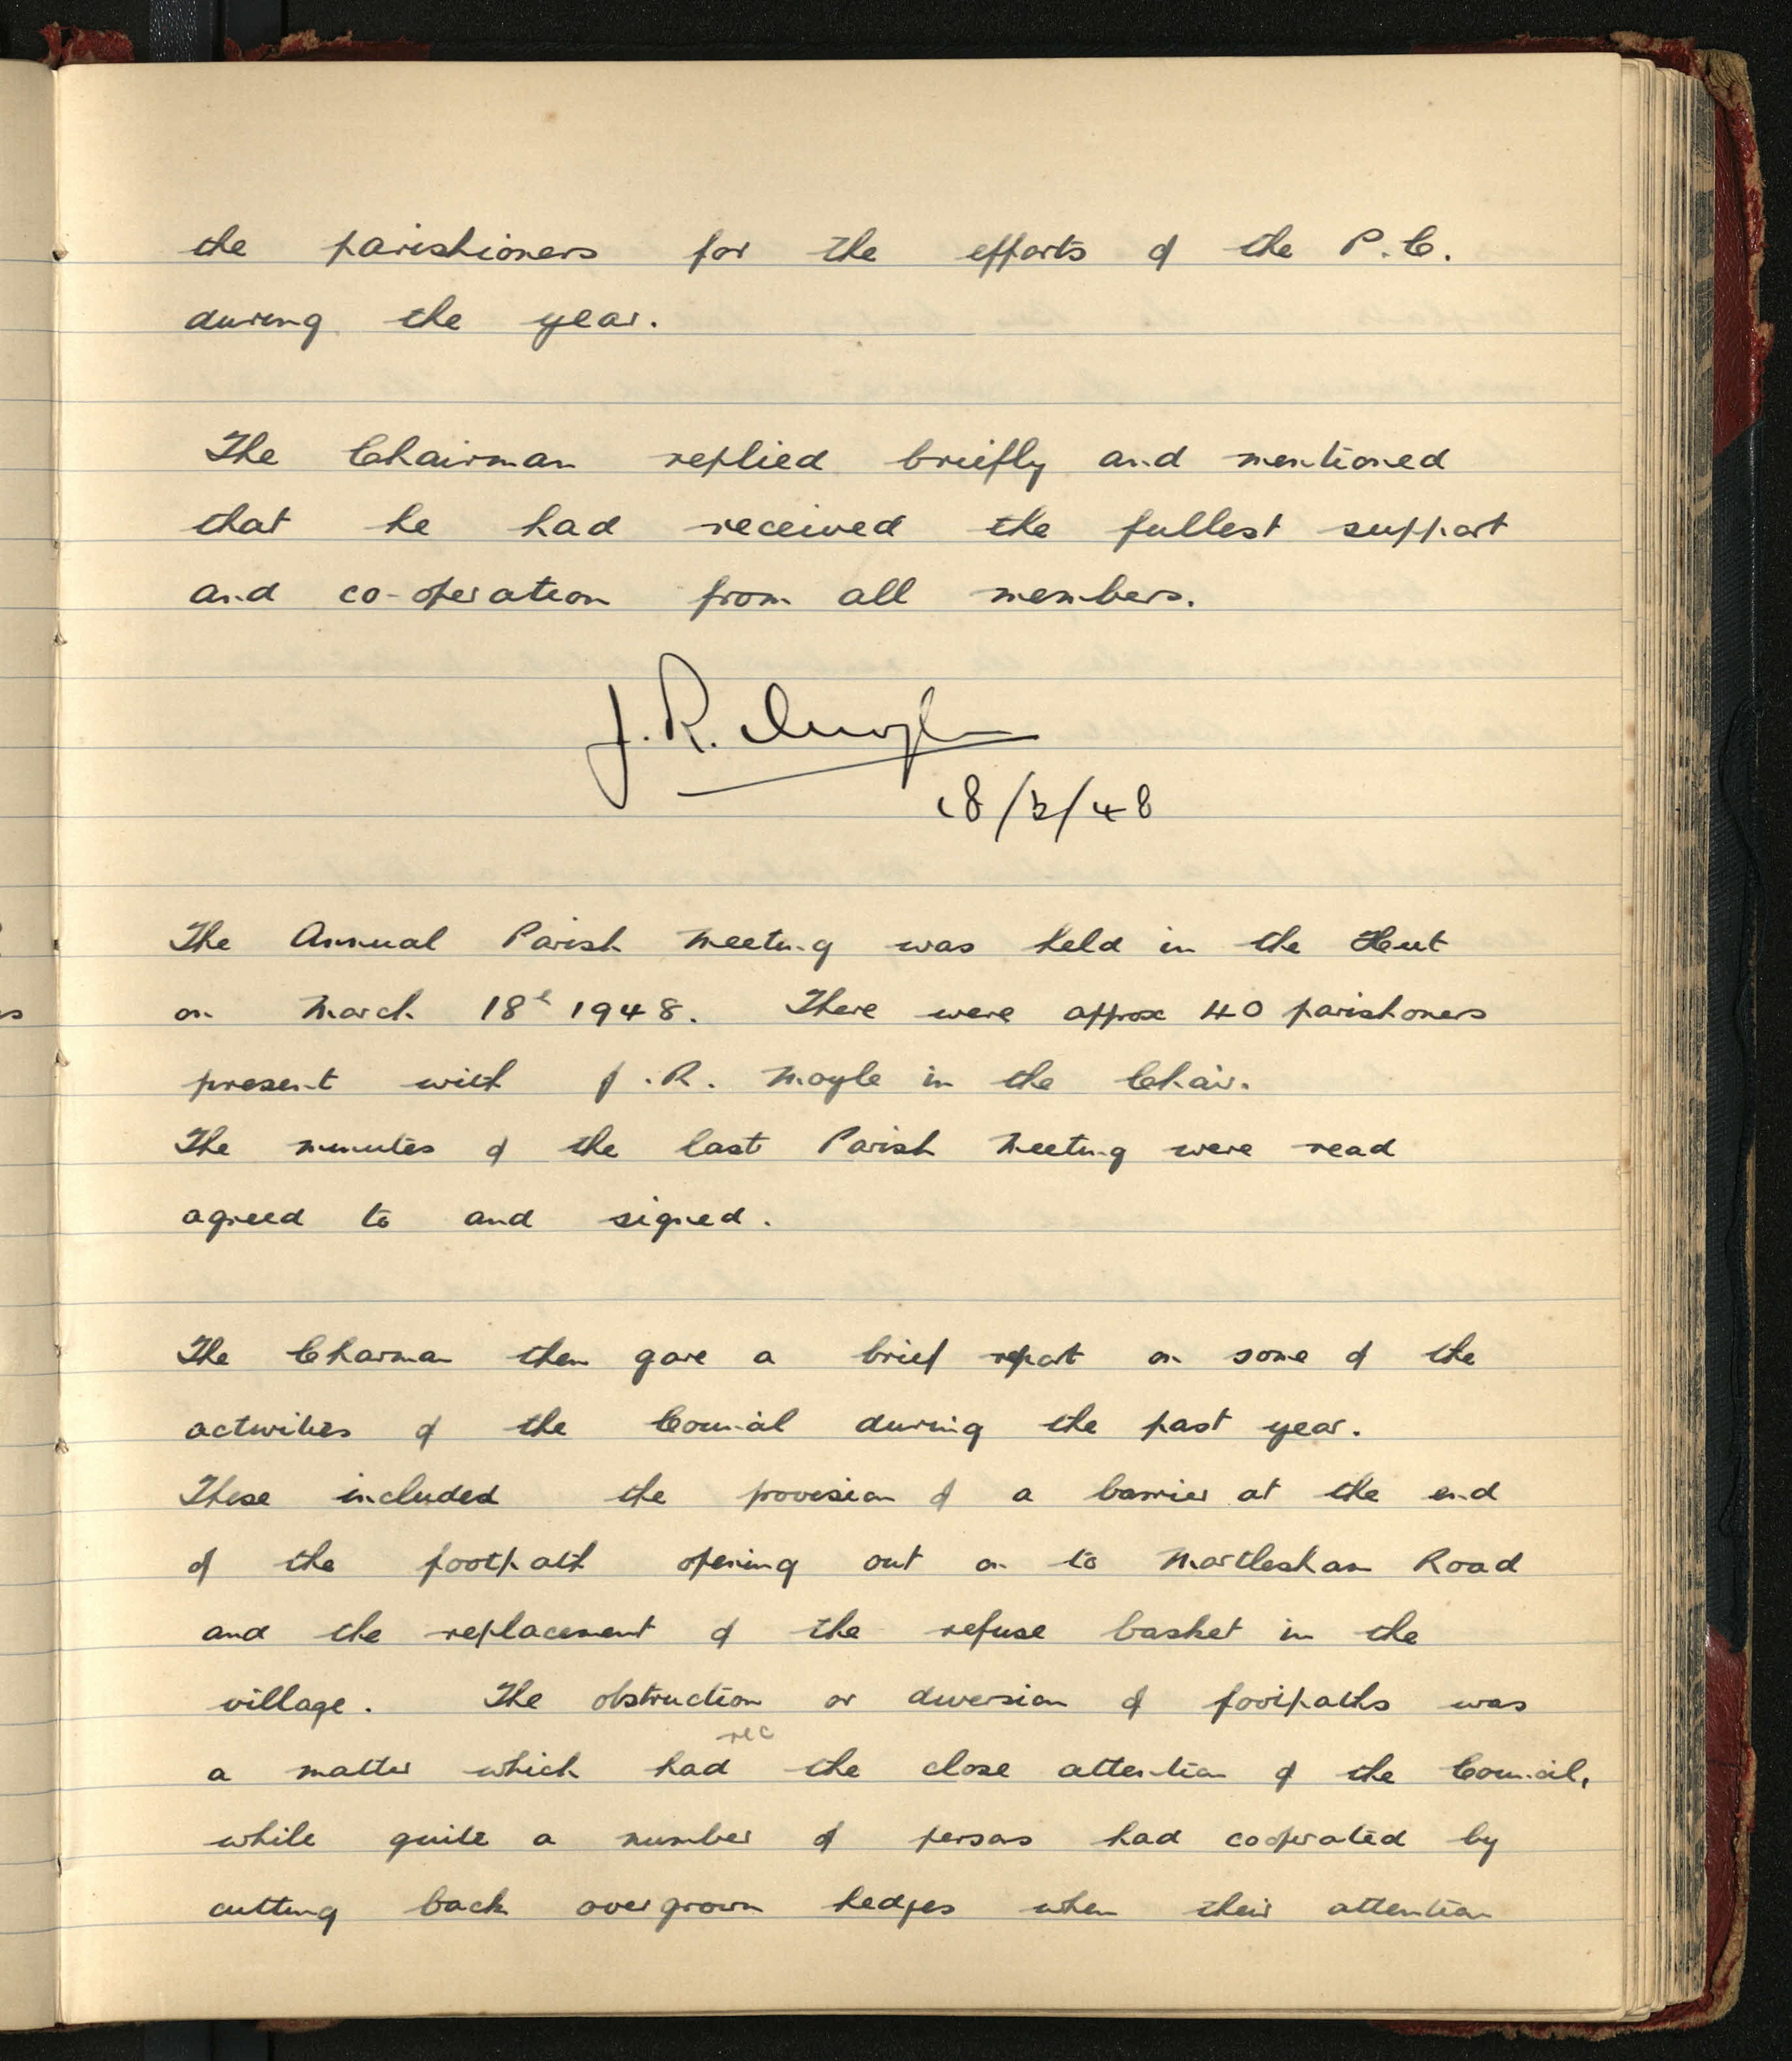 the parishioners for the efforts of the P.C.
during the year.
The Chairman replied briefly and mentioned
that he had received the fullest support
and co-operation from all members.
J. R. Moyle
18/3/48
The Annual Parish Meeting was held in the Hut
on March 18th 1948. There were approx 40 parishoners
present with J.R. Moyle in the Chair.
The minutes of the last Parish Meeting were read
agreed to and signed.
The Chairman then gave a brief report on some of the
activities of the Council during the past year.
These included the provision of a barrier at the end
of the footpath opening out on to Martlesham Road
and the replacement of the refuse basket in the
village. The obstruction or diversion of footpaths was
rec
a matter which had the close attention of the Council,
while quite a number of persons had cooperated by
cutting back overgrown hedges when their attention